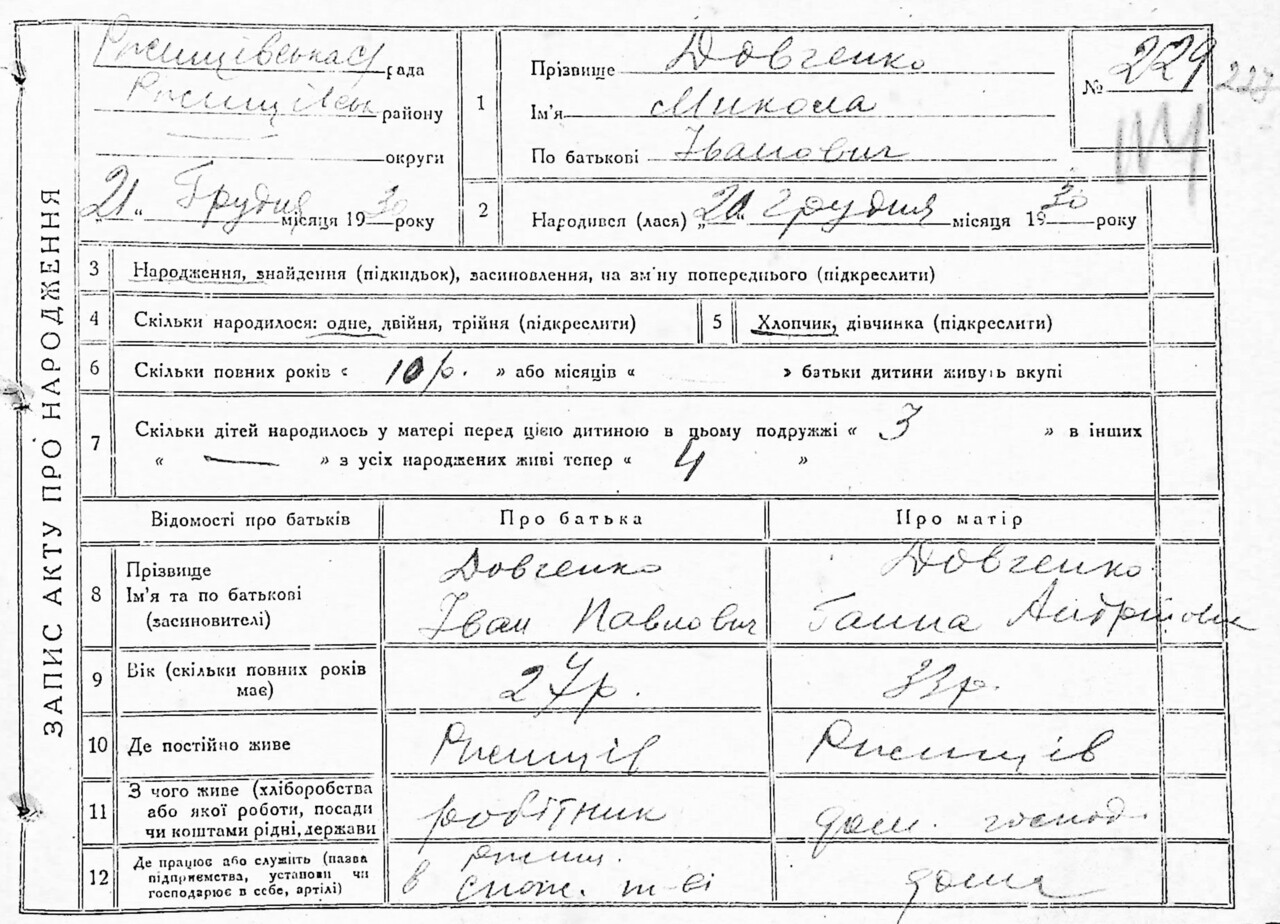 ЗАПИС АКТУ ПРО НАРОДЖЕННЯ
Ржищівська рада
Ржищівськ району
округи
21 „ Грудня місяця 1930 року
1
Прізвище Довченко
Ім'я Микола
По батькові Іванович
№ 229
227
2
Народився (лася) „20“ Грудня місяця 1930 року
3 Народження, знайдення (підкидьок), засиновлення, на зм'ну попереднього (підкреслити)
4 Скільки народилося: одне, двійня, трійня (підкреслити)
5 Хлопчик, дівчинка (підкреслити)
6 Скільки повних років « 10 р. » або місяців « » батьки дитини живуть вкупі
7 Скільки дітей народилось у матері перед цією дитиною в цьому подружжі « 3 » в інших
« — » з усіх народжених живі тепер « 4 »
Відомості про батьків Про батька Про матір
8 Прізвище
Ім'я та по батькові
(засиновителі)
Довченко
Іван Павлович
Довченко
Ганна Андріївна
9 Вік (скільки повних років
має)
27 р.
33 р.
10 Де постійно живе Ржищів Ржищів
11 З чого живе (хліборобства
або якої роботи, посади
чи коштами рідні, держави
робітник
дом. господ.
12 Де працює або служить (назва
підприємства, установи чи
господарює в себе, артілі)
в Ржищ.
спож. т-ві
дома